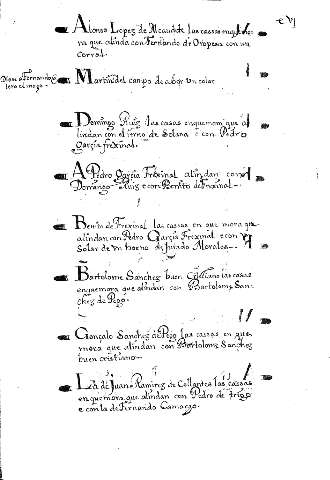 Alonso Lopez de Alcaudete las casas en que mo
ra que alinda con Fernando de Oropesa con su
corral.
Martin del campo de a bor un solar
Domingo Ruiz las casas enquemora que a
lindan con el ierno de Solana e con Pedro
Garçia frexinal.
A Pedro Garçia Frexinal alindan con
Domingo Ruiz e con Benito de Frexinal.
Benito de Frexinal las casas en que mora que
alindan con Pedro Garçia Frexinal e con
Solar de un horno de Jurado Morales.
Bartolome Sanchez buen Cristiano las casas
enquemora que alindan con Bartolome San-
chez de Pego.
Gonçalo Sanchez de Pego las casas en que
mora que alindan con Bartolome Sanchez
buen cristiano.
La de Juan Ramirez de Collantes las casas
en que mora que alindan con Pedro de trigo
e con la de Fernando Camargo.